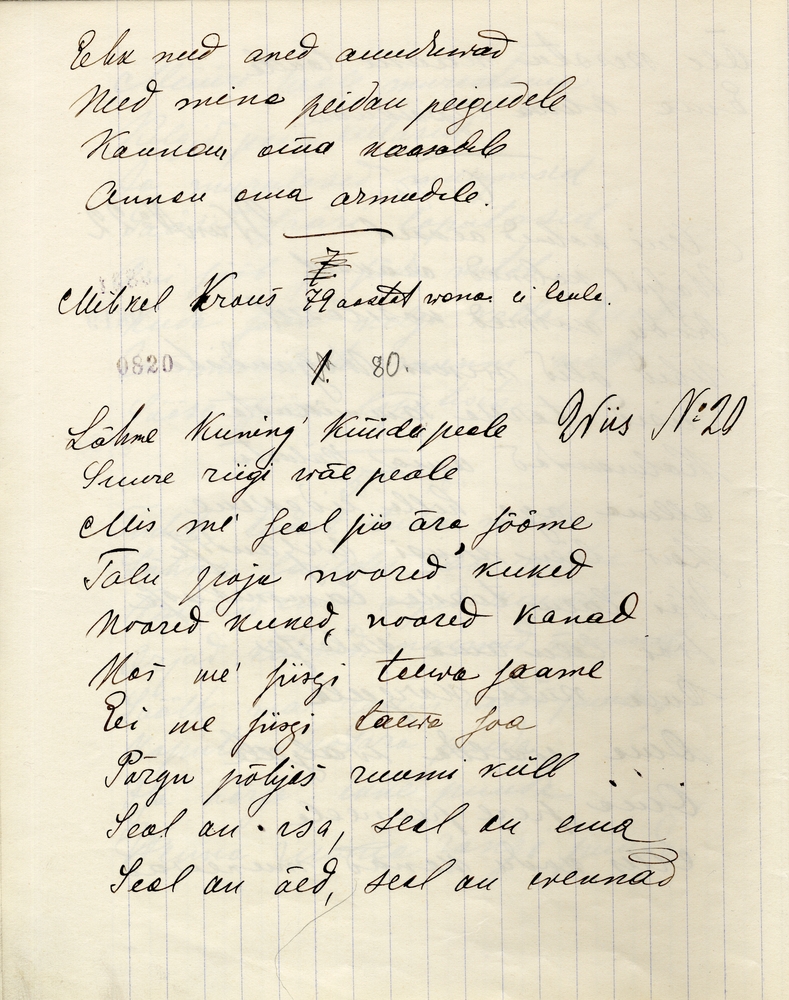 Ehk need aned anuduwad
Need mina peidan peigudele
Kannan oma kaasadele
Annan oma armudele.
7.
Mihkel Kraus 79 aastat wana ei laula.
0820 1. 80.
Lähme kuningʼ küüdu peale Wiis №20
Suure riigi wäe peale
Mis meʼ seal siis ära sööme
Talu poja noored kuked
Noored kuked, noored kanad
Kas meʼ siisgi taewa saame
Ei me siisgi taewa saa
Põrgu põhjas ruumi küll
Seal on isa, seal on ema
Seal on õed, seal on wennad